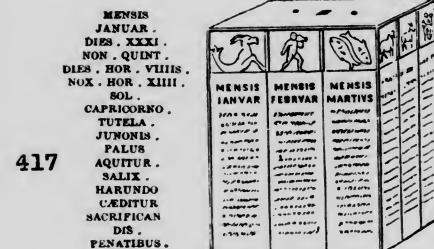 MENSIS
JANUAR .
DIES . XXXI .
NON . QUINT .
DIES . HOR . VIIIIS .
NOX . HOR . XIIII .
SOL .
CAPRICORNO .
TUTELA .
JUNONIS .
PALUS
AQUITUR .
SALIX .
HARUNDO
CÆDITUR
SACRIFICAN
DIS .
PENATIBUS .
417
MENSIS
IANVAR
MENSIS
FEBRVAR
MENSIS
MARTIVS